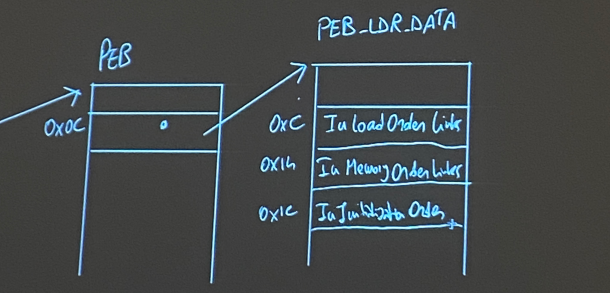 PEB
0x0C
PEB_LDR_DATA
0xC In Load Order Links
0x14 In Memory Order Links
0x1C In Initialization Order